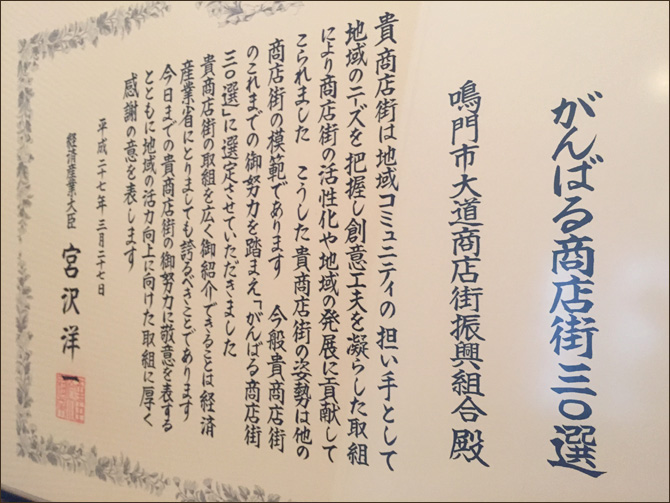 がんばる商店街三〇選
鳴門市大道商店街振興組合殿
貴商店街は地域コミュニティの担い手として
地域のニーズを把握し創意工夫を凝らした取組
により商店街の活性化や地域の発展に貢献して
こられました　こうした貴商店街の姿勢は他の
商店街の模範であります　今般貴商店街
のこれまでの御努力を踏まえ「がんばる商店街
三〇選」に選定させていただきました
貴商店街の取組を広く御紹介できることは経済
産業省にとりましても誇るべきことであります
今日までの貴商店街の御努力に敬意を表する
とともに地域の活力向上に向けた取組に厚く
感謝の意を表します
平成二十七年三月二十七日
経済産業大臣　宮沢洋一